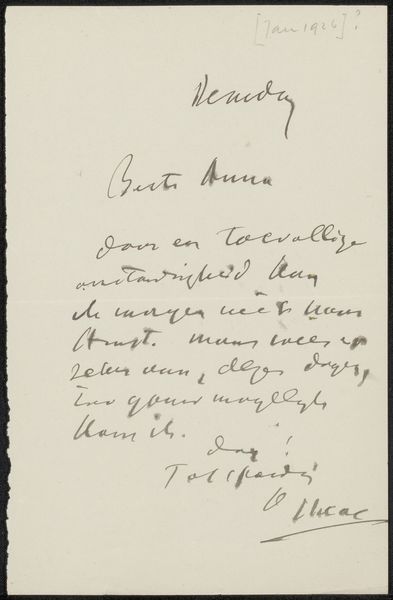 [Jan 1926]?
Beste Anna
door een toevallige
omstandigheid kan
ik morgen niet naar
komst. maar wees er
zeker van, dezer dagen,
zoo gauw mogelijk
kom ik.
dag!
Tot spoedig